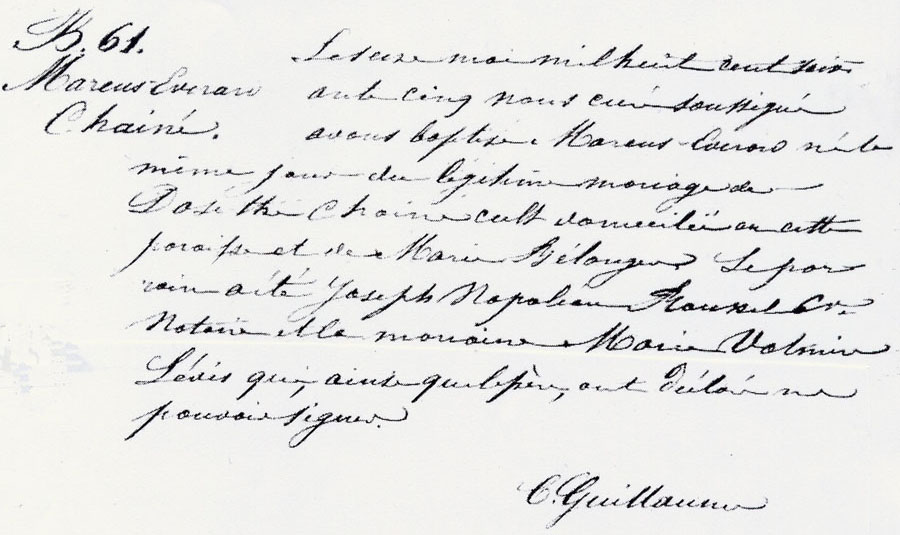 B. 61.
Marcus Everard
Chainé.
Le seize mai mil huit cent soix-
ante cinq nous curé soussigné
avons baptisé Marcus-Everard né le
même jour du légitime mariage de
Dosithé Chainé cult domicilié en cette
paroisse et de Marie Bélanger. Le par
rain a été Joseph Napoléon Rousel Cr.
Notaire et la marraine Marie
Lévis qui, ainsi que le père, ont déclaré ne
pouvoir signer.
C. Guillaume